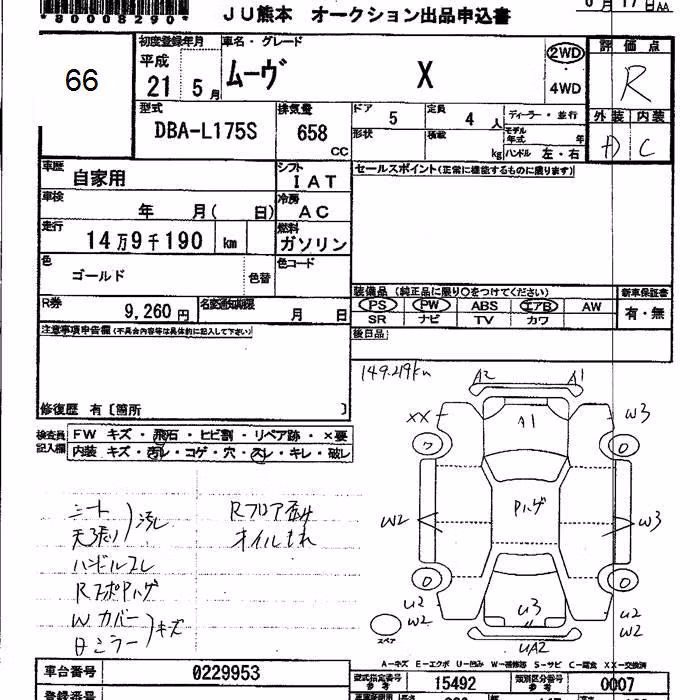 *80008290*
JU熊本 オークション出品申込書
6月17日AA
66
初度登録年月
平成
21 5月
車名・グレード
ムーヴ X
2WD
・
4WD
評価点
R
外装 内装
D C
型式
DBA-L175S
排気量
658
CC
ドア
5
定員
4人
形状
積載
kg
ディーラー・並行
モデル年式 年
ハンドル 左・右
車歴
自家用
シフト
IAT
セールスポイント(正常に機能するものに限ります)
車検
年 月( 日)
冷房
AC
走行
14万9千190 km
燃料
ガソリン
色
ゴールド
色替
色コード
装備品(純正品に限り○をつけてください)
新車保証書
PS PW ABS エアB AW
有・無
SR ナビ TV カワ
R券
9,260円
名変通知期限
月 日
後日品
注意事項申告欄(不具合内容等は具体的に記入して下さい)
修復歴 有〔箇所 〕
149.219km
検査員記入欄
FW キズ・飛石・ヒビ割・リペア跡・×要
内装 キズ・汚レ・コゲ・穴・スレ・キレ・破レ
A2 A1
XX A1 W3
ワ 0
W2 Pハゲ W3
0 0
U2 U3 U2
W2 W2
UA2
スペア
シート
天張り
汚れ
ハンドルスレ
RスポPハゲ
W.カバー
日ミラー
キズ
Rフロア歪み
オイルもれ
A-キズ E-エクボ U-凹み W-補修跡 S-サビ C-腐食 XX-交換済
車台番号
0229953
型式指定番号
参考
15492
類別区分番号
参考
0007
登録番号